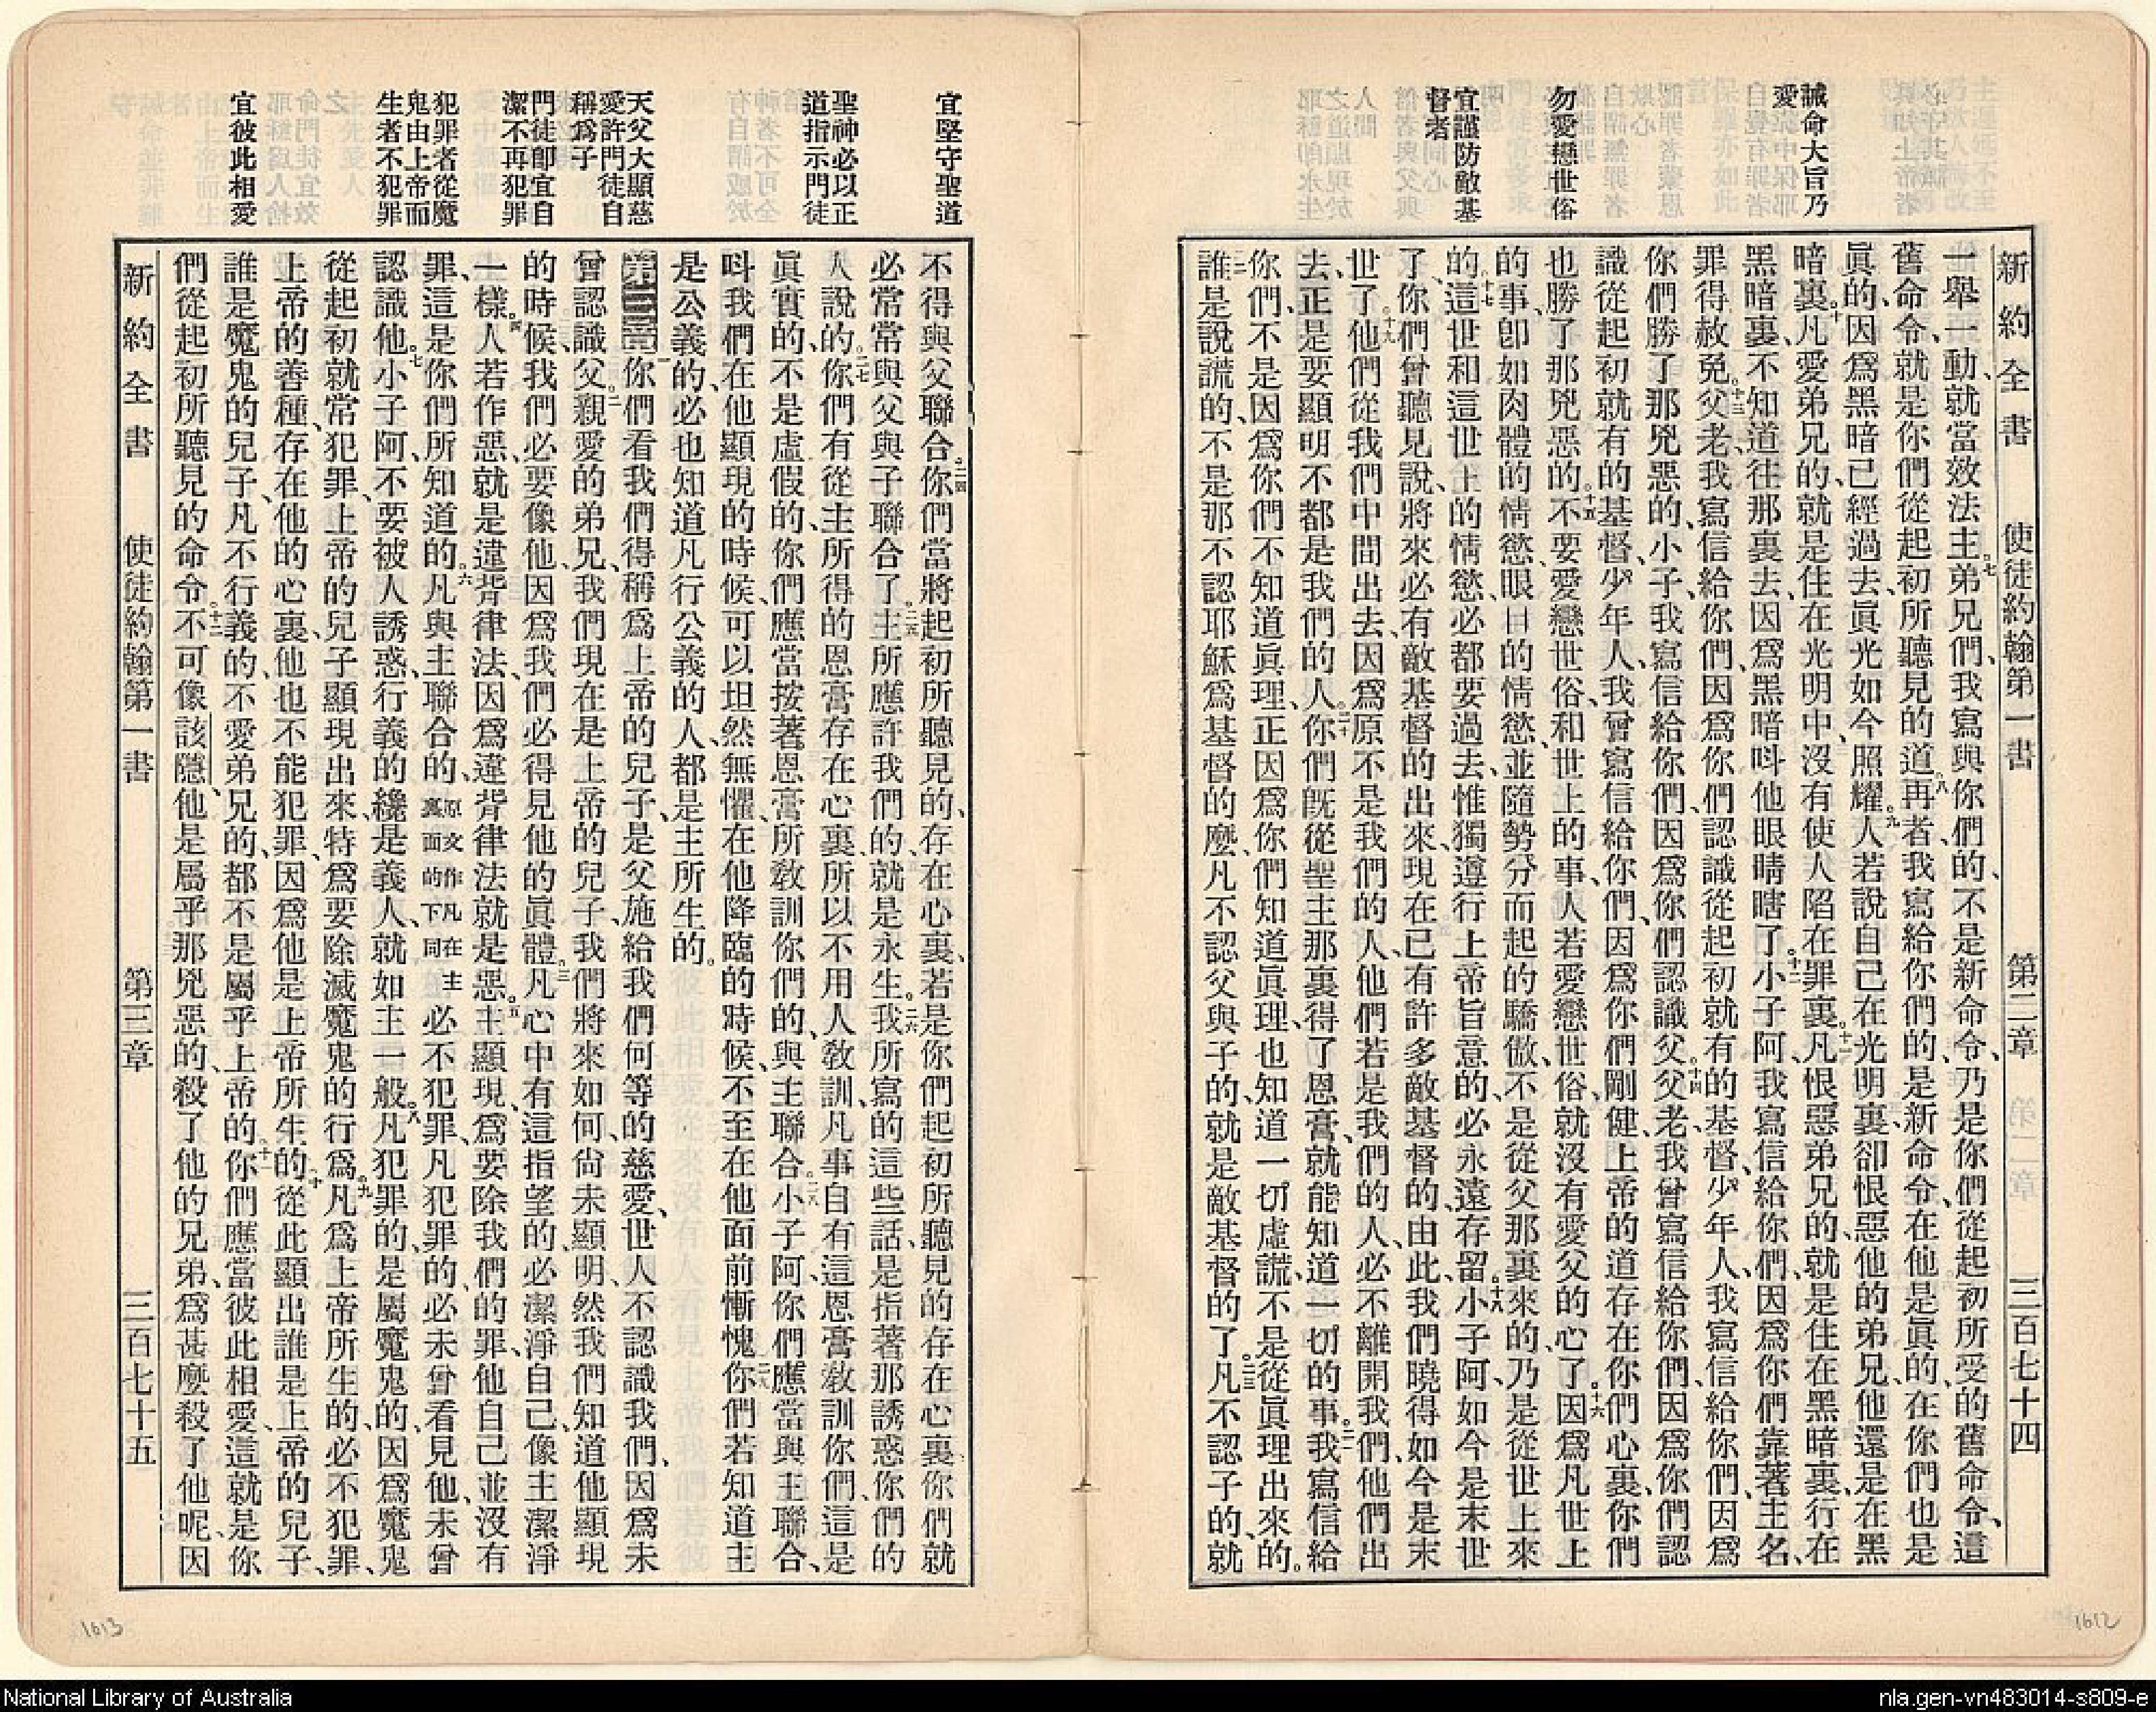 誡命大旨乃
愛
勿愛戀世俗
宜謹防敵基
督者
新約全書 使徒約翰第一書 第二章 三百七十四
一舉一動、就當效法主。七弟兄們、我寫與你們的、不是新命令、乃是你們從起初所受的舊命令、這
舊命令、就是你們從起初所聽見的道。八再者、我寫給你們的、是新命令、在他是眞的、在你們也是
眞的、因爲黑暗已經過去、眞光如今照耀。九人若說自己在光明裏、卻恨惡他的弟兄、他還是在黑
暗裏。十凡愛弟兄的、就是住在光明中、沒有使人陷在罪裏。十一凡恨惡弟兄的、就是住在黑暗裏、行在
黑暗裏、不知道往那裏去、因爲黑暗呌他眼睛瞎了。十二小子阿、我寫信給你們、因爲你們靠著主名、
罪得赦免。十三父老、我寫信給你們、因爲你們認識從起初就有的基督、少年人、我寫信給你們、因爲
你們勝了那兇惡的、小子、我寫信給你們、因爲你們認識父。十四父老、我曾寫信給你們、因爲你們認
識從起初就有的基督、少年人、我曾寫信給你們、因爲你們剛健、上帝的道存在你們心裏、你們
也勝了那兇惡的。十五不要愛戀世俗、和世上的事、人若愛戀世俗、就沒有愛父的心了。十六因爲凡世上
的事、卽如肉體的情慾、眼目的情慾、並隨勢分而起的驕傲、不是從父那裏來的、乃是從世上來
的。十七這世和這世上的情慾、必都要過去、惟獨遵行上帝旨意的、必永遠存留。十八小子阿、如今是末世
了、你們曾聽見說、將來必有敵基督的出來、現在已有許多敵基督的、由此我們曉得如今是末
世了。十九他們從我們中間出去、因爲原不是我們的人、他們若是我們的人、必不離開我們、他們出
去、正是要顯明不都是我們的人。二十你們旣從聖主那裏得了恩膏、就能知道一切的事。二一我寫信給
你們、不是因爲你們不知道眞理、正因爲你們知道眞理、也知道一切虛謊、不是從眞理出來的。
二二誰是說謊的、不是那不認耶穌爲基督的麽、凡不認父與子的、就是敵基督的了。二三凡不認子的、就
宜堅守聖道
聖神必以正
道指示門徒
天父大顯慈
愛許門徒自
稱爲子
門徒卽宜自
潔不再犯罪
犯罪者從魔
鬼由上帝而
生者不犯罪
宜彼此相愛
不得與父聯合。二四你們當將起初所聽見的、存在心裏、若是你們起初所聽見的存在心裏、你們就
必常常與父與子聯合了。二五主所應許我們的、就是永生。二六我所寫的這些話、是指著那誘惑你們的
人說的。二七你們有從主所得的恩膏存在心裏、所以不用人敎訓、凡事自有這恩膏敎訓你們、這是
眞實的、不是虛假的、你們應當按著恩膏所敎訓你們的、與主聯合。二八小子阿、你們應當與主聯合、
呌我們在他顯現的時候、可以坦然無懼、在他降臨的時候、不至在他面前慚愧。二九你們若知道主
是公義的、必也知道凡行公義的人、都是主所生的。
第三章 一你們看我們得稱爲上帝的兒子、是父施給我們何等的慈愛、世人不認識我們、因爲未
曾認識父。二親愛的弟兄、我們現在是上帝的兒子、我們將來如何、尙未顯明、然我們知道他顯現
的時候、我們必要像他、因爲我們必得見他的眞體。三凡心中有這指望的、必潔淨自己、像主潔淨
一樣。四人若作惡、就是違背律法、因爲違背律法就是惡。五主顯現、爲要除我們的罪、他自己並沒有
罪、這是你們所知道的。六凡與主聯合的、原文作凡在主裏面的下同必不犯罪、凡犯罪的、必未曾看見他、未曾
認識他。七小子阿、不要被人誘惑、行義的纔是義人、就如主一般。八凡犯罪的、是屬魔鬼的、因爲魔鬼
從起初就常犯罪、上帝的兒子顯現出來、特爲要除滅魔鬼的行爲。九凡爲上帝所生的、必不犯罪、
上帝的善種、存在他的心裏、他也不能犯罪、因爲他是上帝所生的。十從此顯出誰是上帝的兒子、
誰是魔鬼的兒子、凡不行義的、不愛弟兄的、都不是屬乎上帝的。十一你們應當彼此相愛、這就是你
們從起初所聽見的命令。十二不可像該隱、他是屬乎那兇惡的、殺了他的兄弟、爲甚麽殺了他呢、因
新約全書 使徒約翰第一書 第三章 三百七十五
1613
1612
National Library of Australia
nla.gen-vn483014-s809-e